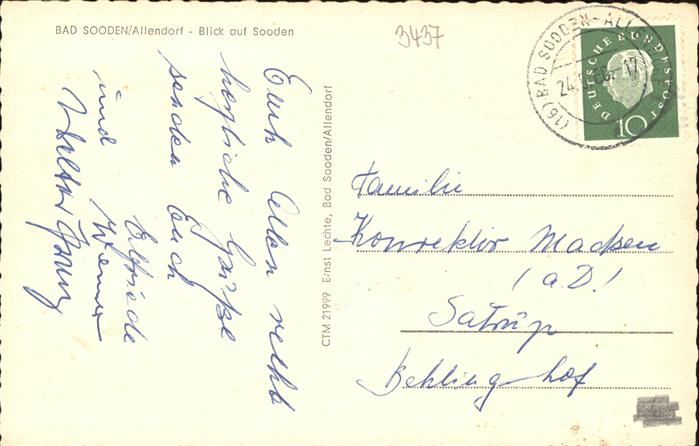 BAD SOODEN/Allendorf - Blick auf Sooden
3437
(16) BAD SOODEN-ALL
24.5.60.-17
DEUTSCHE BUNDESPOST
10
Euch Allen recht
herzliche Grüße
senden Euch
Elfriede
und Werner
Walter
CTM 21999 Ernst Lechte, Bad Sooden/Allendorf
Familie
Konrektor Madsen
(a.D.)
Satrup
Behlinghof